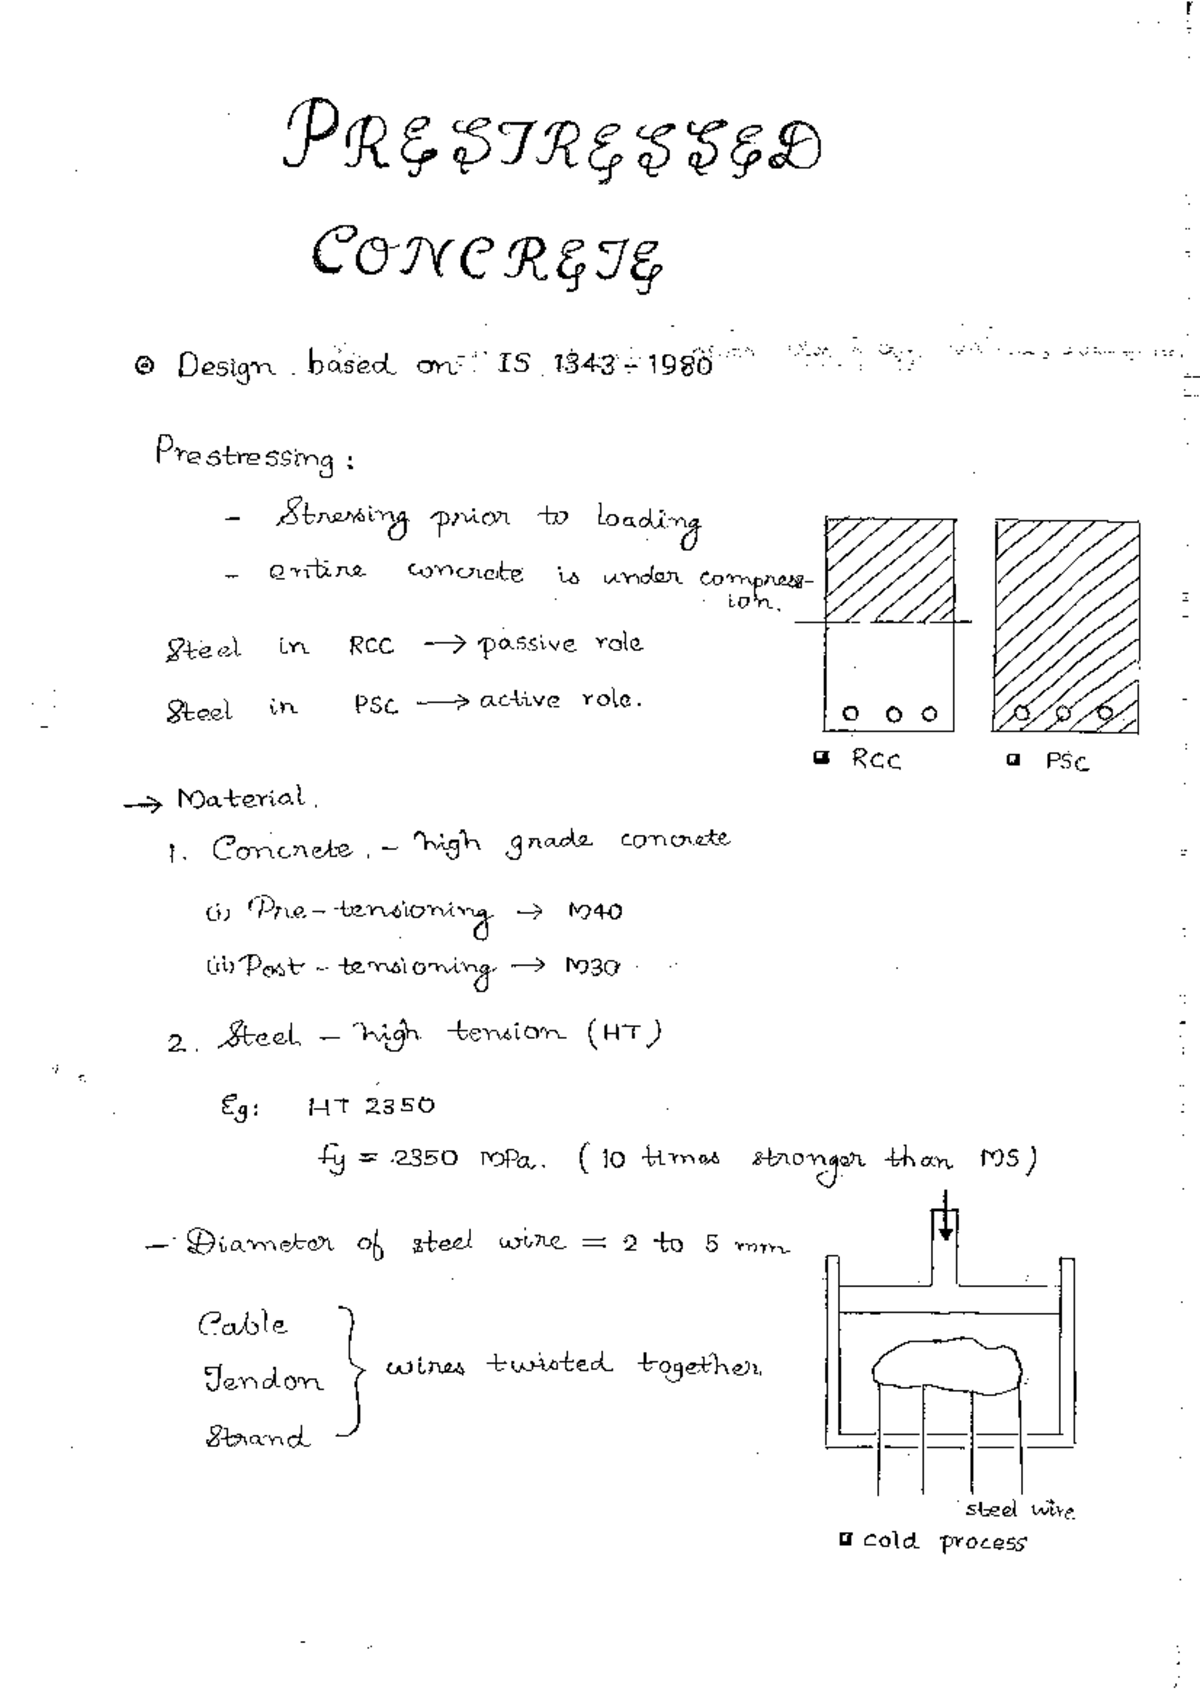 PRESTRESSED
CONCRETE
Design based on IS 1343-1980
Prestressing:
- Stressing prior to loading
- entire concrete is under compress-
ion.
Steel in RCC → passive role
Steel in PSC → active role.
RCC
PSC
→ Material.
1. Concrete. - high grade concrete
(i) Pre-tensioning → M40
(ii) Post-tensioning → M30
2. Steel - high tension (HT)
Eg: HT 2350
fy = 2350 MPa. (10 times stronger than MS)
- Diameter of steel wire = 2 to 5 mm
Cable
Tendon } wires twisted together
Strand
steel wire
cold process